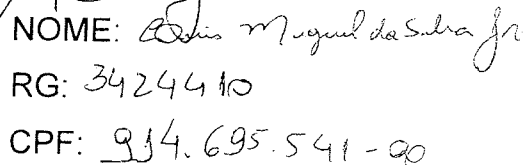 NOME: Miguel da Silva Jr
RG: 3424410
CPF: 914.695.541-90